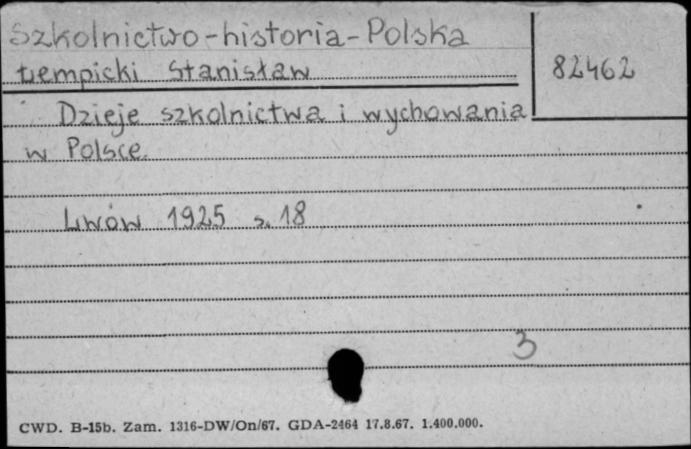 Szkolnictwo-historia-Polska
Łempicki Stanisław
82462
Dzieje szkolnictwa i wychowania
w Polsce.
Lwów 1925 s. 18
3
CWD. B-15b. Zam. 1316-DW/On/67. GDA-2464 17.8.67. 1.400.000.